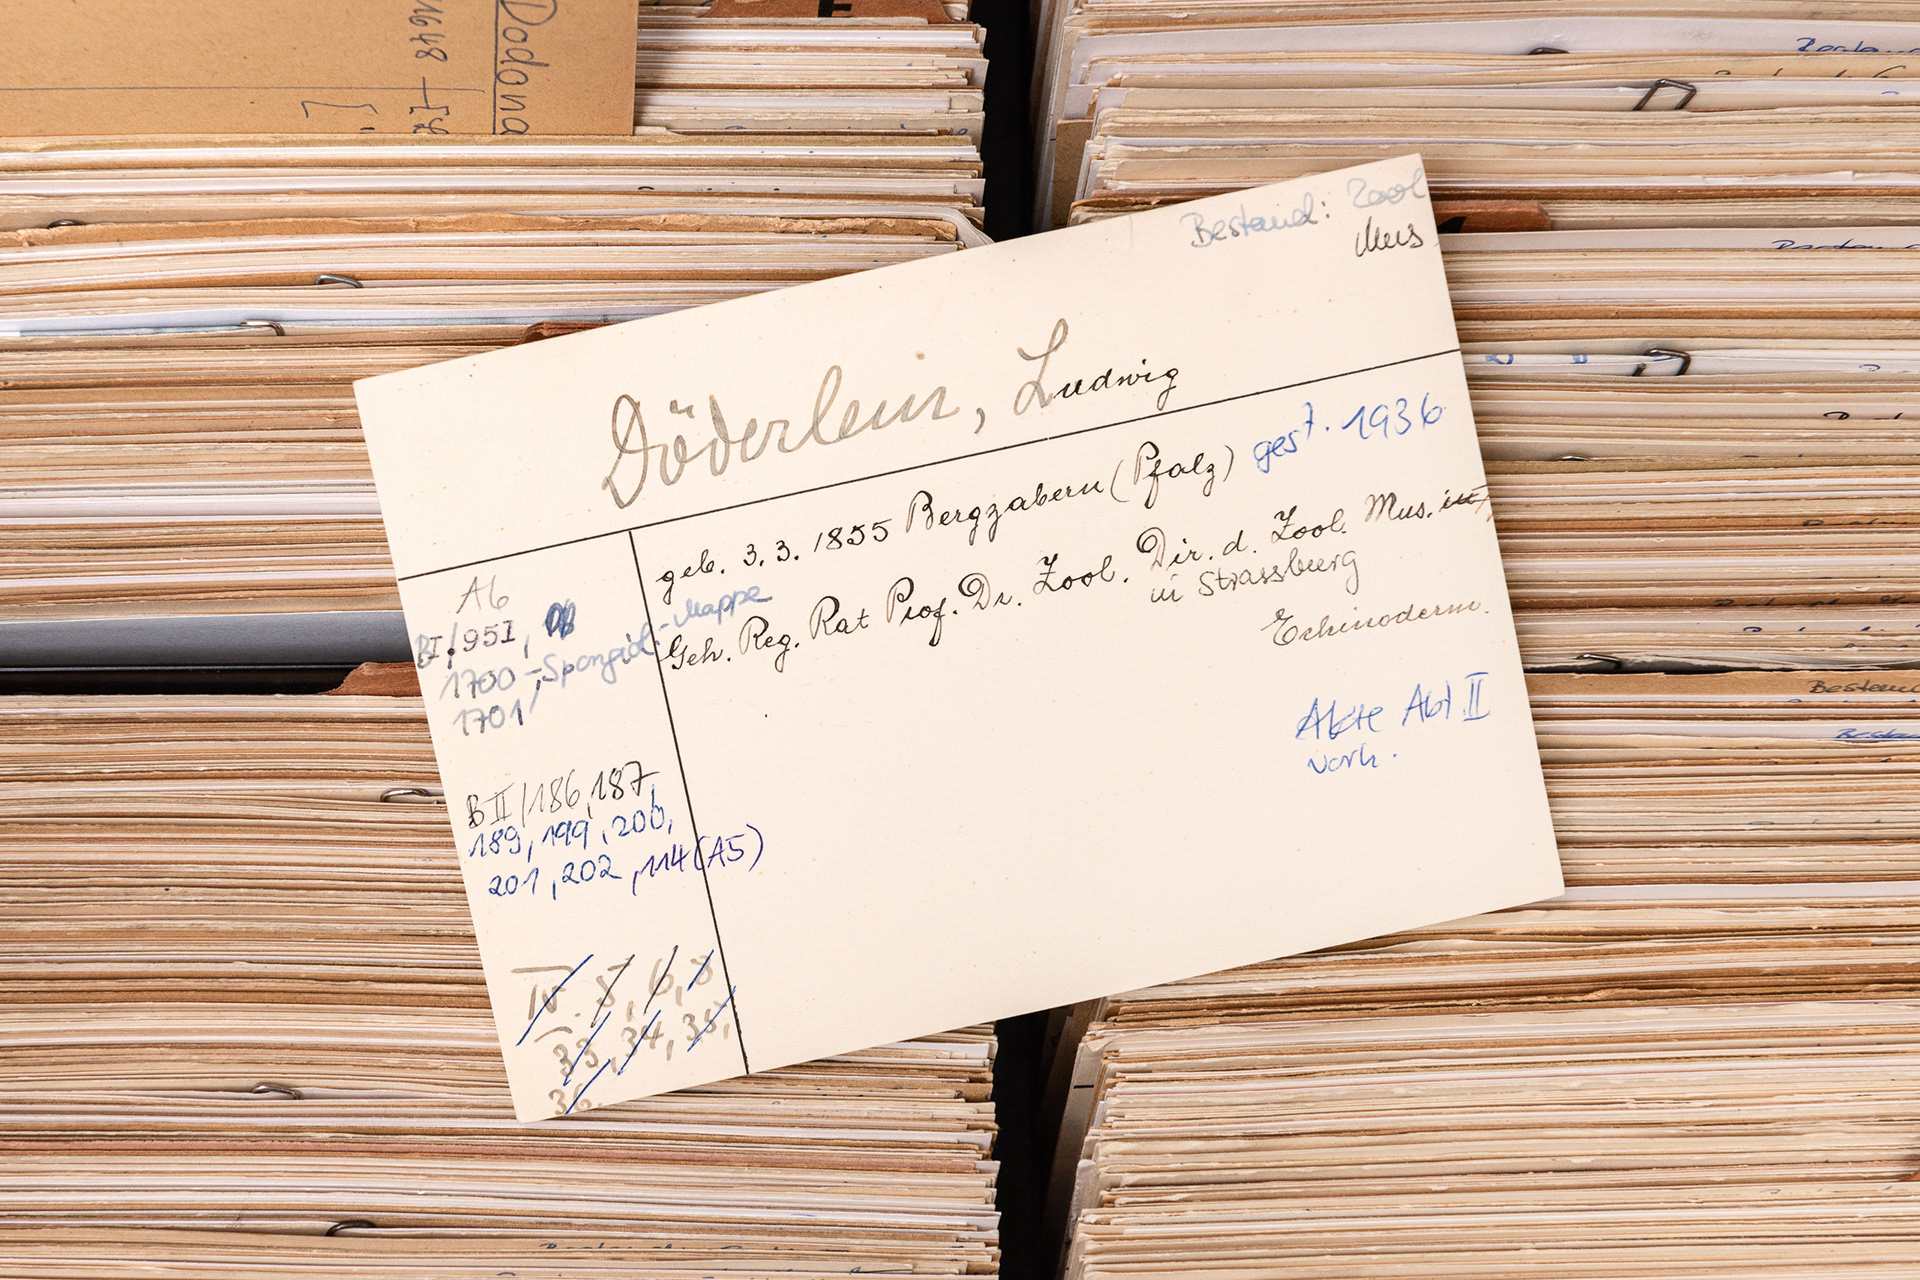 Dodona
1648
Bestand: Zool
Mus
Döderlein, Ludwig
geb. 3.3.1855 Bergzabern (Pfalz) gest. 1936
Geh. Reg. Rat Prof. Dr. Zool. Dir. d. Zool. Mus. in
in Strassburg
Echinoderm.
Akte Abt II
vorh.
A6
BI/951,
1700 - Spongiol.-Mappe
1701
BII/186,187,
189,199,200,
201,202,114(A5)
IV. 5, 6, 8
33, 34, 35,
36.
Bestand